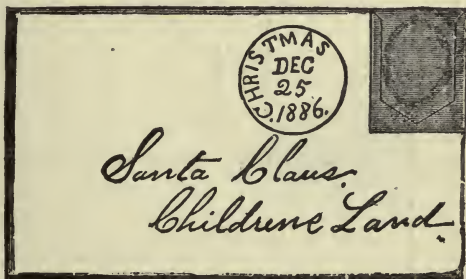 CHRISTMAS
DEC
25
1886.
Santa Claus.
Childrene Land.